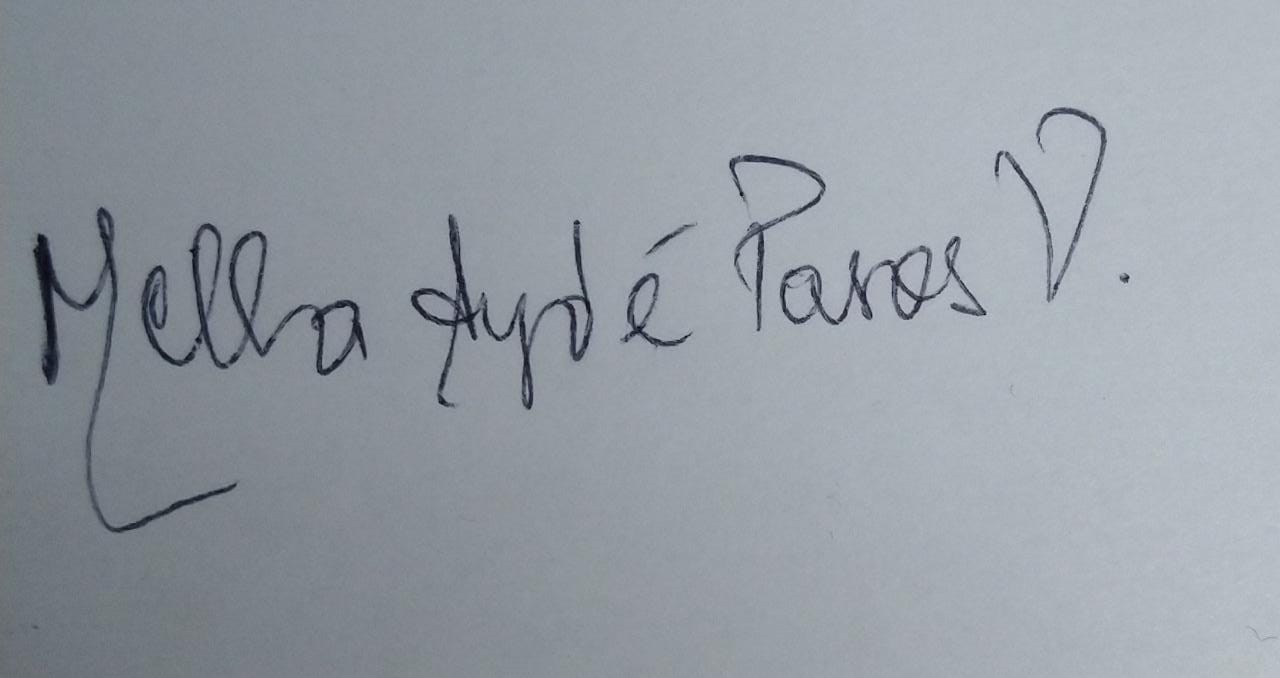 Melba Aydé Pasos V.